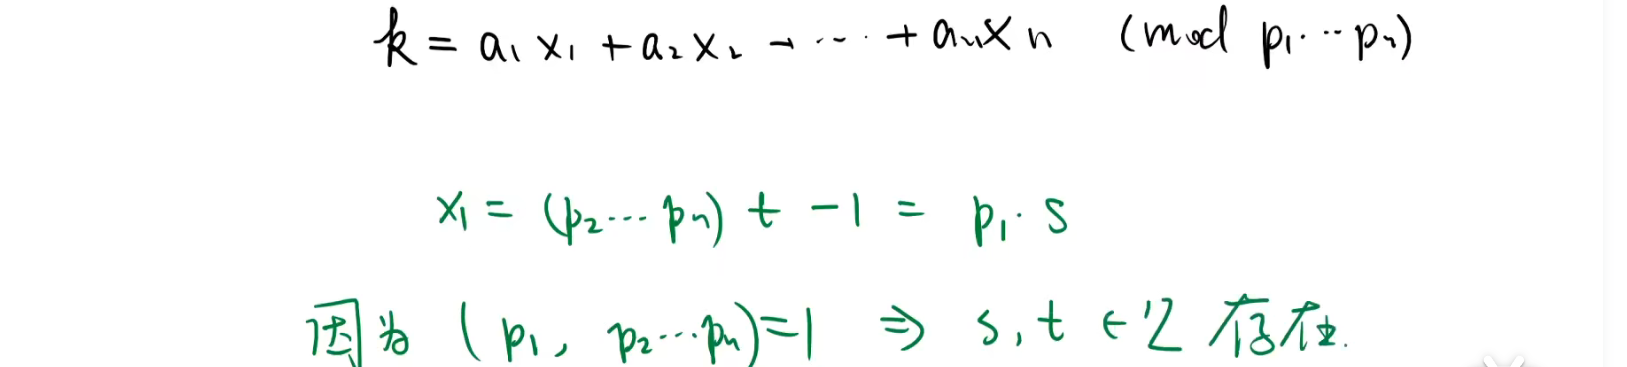 k = a₁x₁ + a₂x₂ + ⋯ + aₙxₙ (mod p₁⋯pₙ)
x₁ = (p₂⋯pₙ) t − 1 = p₁·s
因为 (p₁, p₂⋯pₙ)=1 ⇒ s, t ∈ Z 存在.